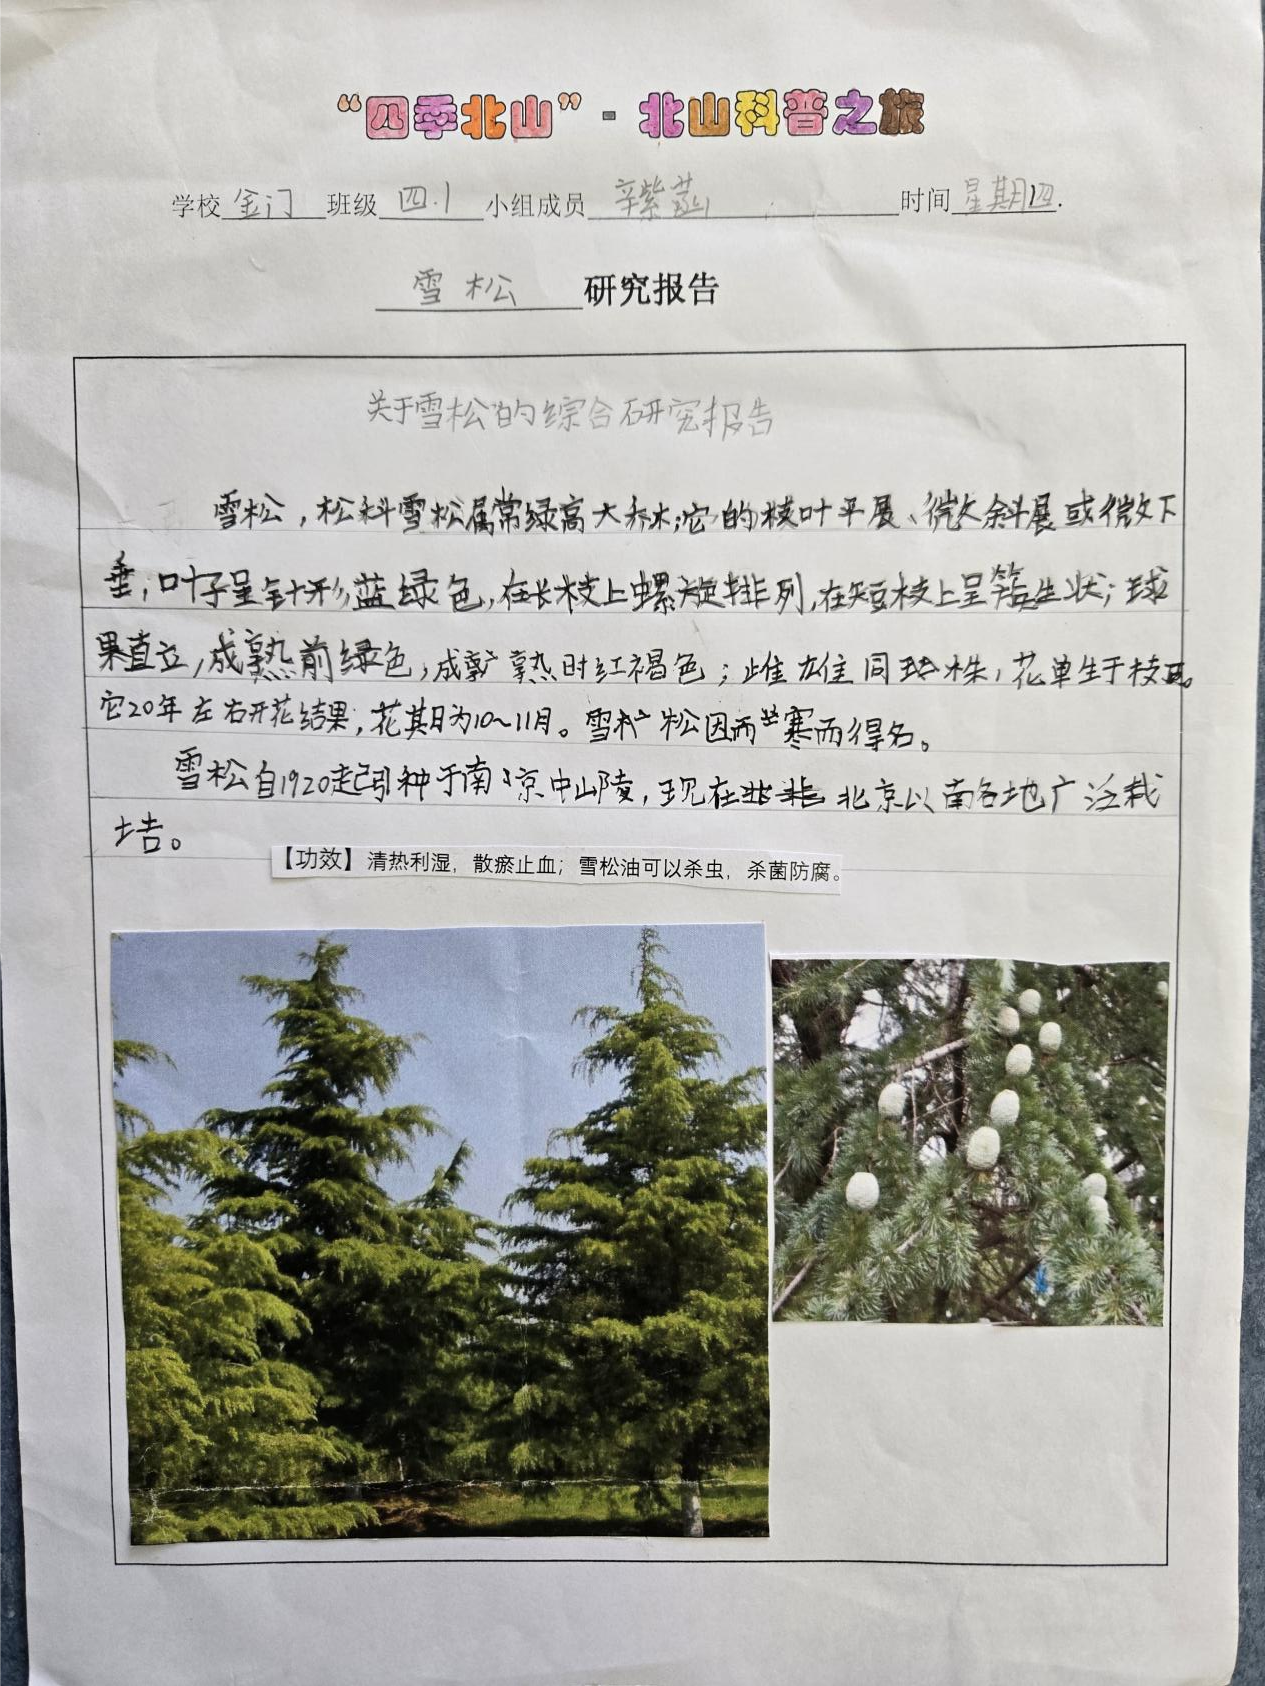 “四季北山”-北山科普之旅
学校 金门 班级 四.1 小组成员 辛紫菡 时间 星期四.
雪松 研究报告
关于雪松的综合研究报告
雪松，松科雪松属常绿高大乔木；它的枝叶平展、微斜展或微下
垂，叶子呈针形，蓝绿色，在长枝上螺旋排列，在短枝上呈簇生状；球
果直立，成熟前绿色，成熟时红褐色；雌雄同株，花单生于枝顶。
它20年左右开花结果，花期为10～11月。雪松因而寒而得名。
雪松自1920起引种于南京中山陵，现在北京以南各地广泛栽
培。
【功效】清热利湿，散瘀止血；雪松油可以杀虫，杀菌防腐。